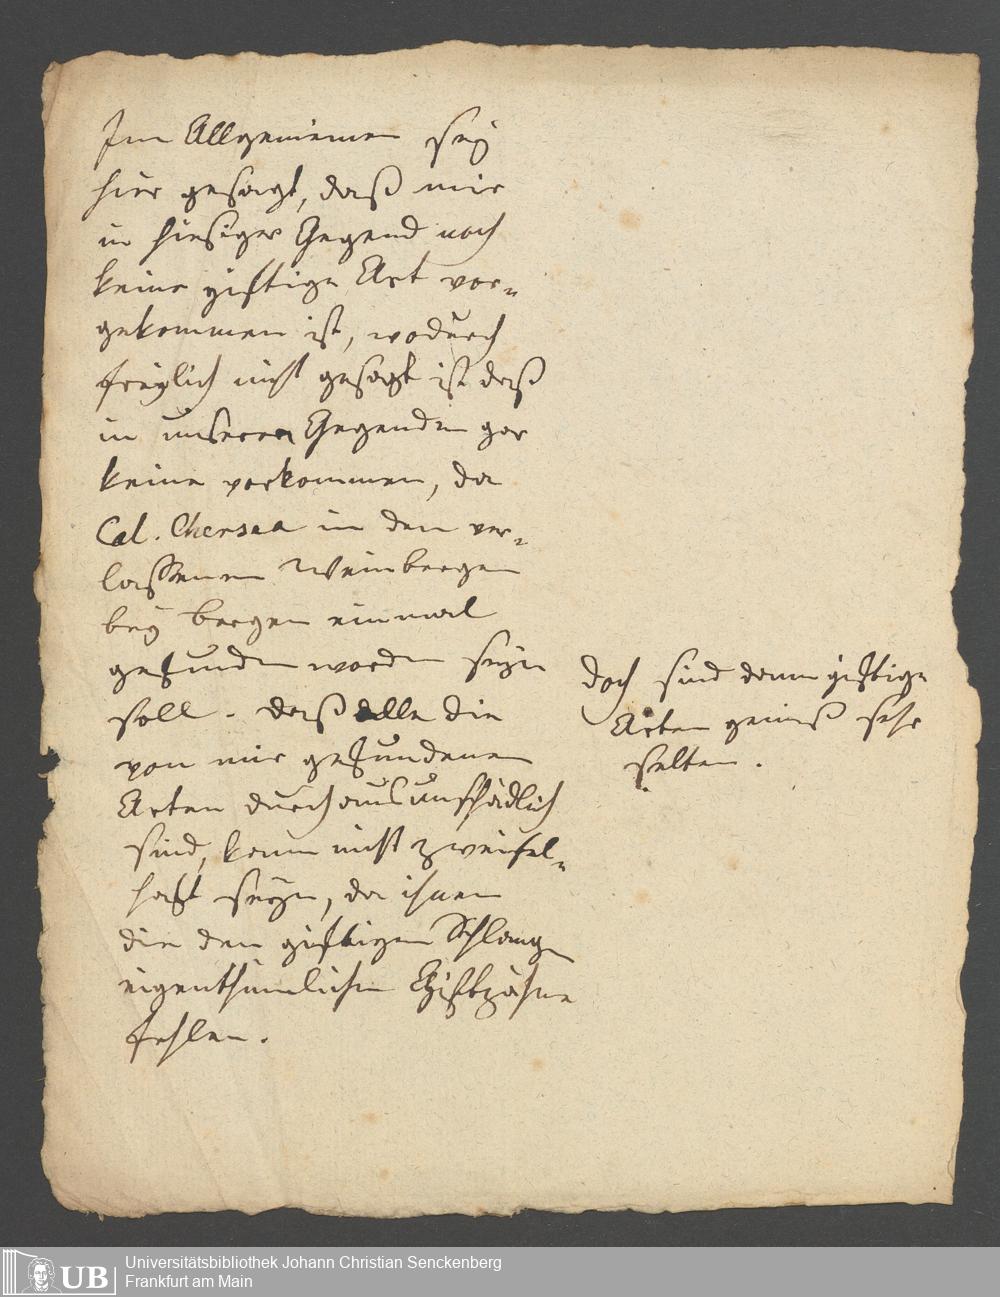 Im Allgemeinen sey
hier gesagt, daß mir
in hiesiger Gegend noch
keine giftige Art vor-
gekommen ist, wodurch
freylich nicht gesagt ist daß
in unseren Gegenden gar
keine vorkommen, da
Col. Chersea in den ver-
lassenen Weinbergen
bey Bergen einmal
gefunden worden seyn
soll. Daß alle die
von mir gefundenen
Arten durchaus unschädlich
sind, kann nicht zweifel-
haft seyn, da ihnen
die den giftigen Schlangen
eigenthümlichen Giftzähne
fehlen.
Doch sind dann giftige
Arten gewiß sehr
selten.
Universitätsbibliothek Johann Christian Senckenberg
Frankfurt am Main
UB